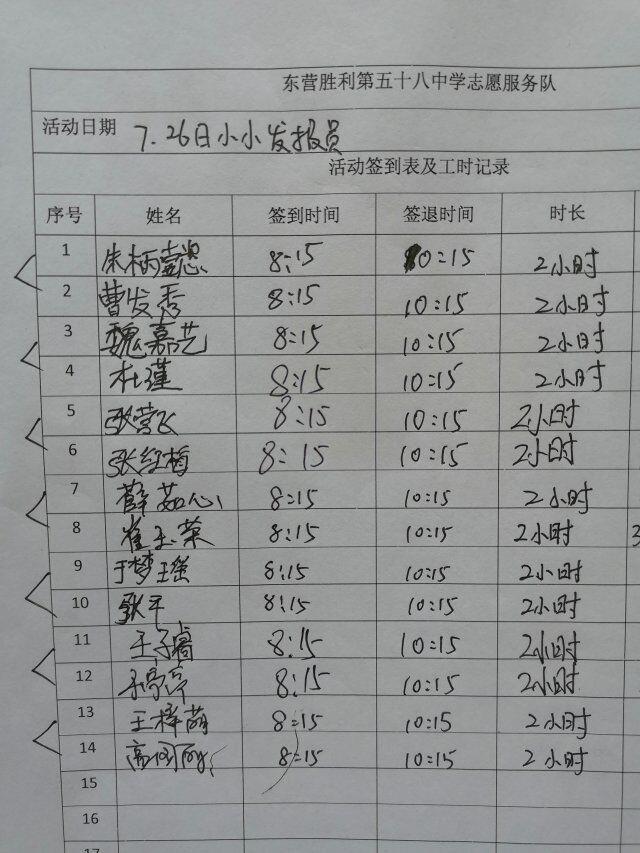 东营胜利第五十八中学志愿服务队
活动日期 7.26日小小发报员
活动签到表及工时记录
序号 姓名 签到时间 签退时间 时长
1 朱柄壹 8:15 10:15 2小时
2 曹发秀 8:15 10:15 2小时
3 魏嘉艺 8:15 10:15 2小时
4 杜瑾 8:15 10:15 2小时
5 张营飞 8:15 10:15 2小时
6 张红梅 8:15 10:15 2小时
7 薛茹心 8:15 10:15 2小时
8 崔玉荣 8:15 10:15 2小时 3
9 于梦瑶 8:15 10:15 2小时
10 张平 8:15 10:15 2小时
11 王子睿 8:15 10:15 2小时
12 8:15 10:15 2小时
13 王梓萌 8:15 10:15 2小时
14 高 丽 8:15 10:15 2小时
15
16
17